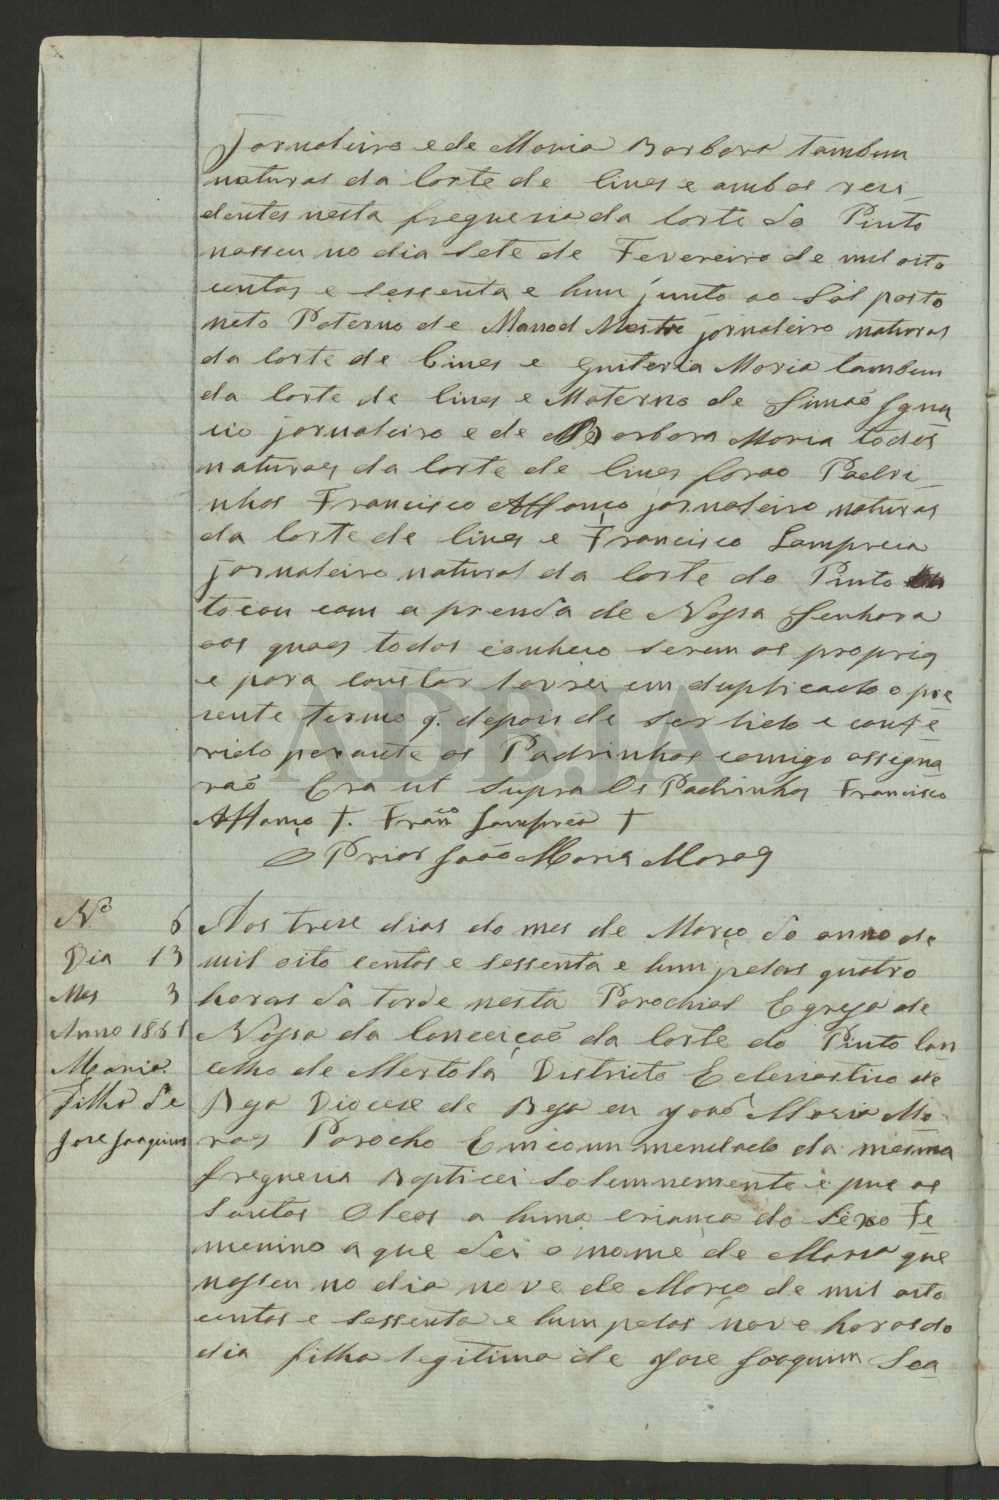 Jornaleiro e de Maria Barbara tambem
naturas da Corte de Cines e ambos resi
dentes nesta freguesia da Corte do Pinto
nasseu no dia sete de Fevereiro de mil oito
centos e sessenta e hum junto ao Sol posto
neto Paterno de Manoel Mestre jornaleiro naturas
da Corte de Cines e Guiteria Maria tambem
da Corte de Cines e Materno de Simaõ Igna
cio jornaleiro e de Barbara Maria todos
naturaes da Corte de Cines forao Padri_
nhos Francisco Affonço jornaleiro naturas
da Corte de Cines e Francisco Lampreia
jornaleiro natural da Corte do Pinto
tocou com a prenda de Nossa Senhora
aos quaes todos conheco serem os proprios
e para constar lavrei em duplicado o pre
sente termo q. depois de ser lido e confe
rido perante os Padrinhos comigo assigna
raõ Era ut supra Os Padrinhos Francisco
Affonço †. Franco Lampreia †
O Prior João Maria Moraes
No 6
Dia 13
Mes 3
Anno 1861
Maria
Filha de
Jose Joaquim
Aos treze dias do mes de Março do anno de
mil oito centos e sessenta e hum pelas quatro
horas da tarde nesta Parochial Egreja de
Nossa da Conceiçaõ da Corte do Pinto Con
celho de Mertola Districto Eclesiastico de
Beja Diocese de Beja eu Joaõ Maria Mo
raes Parocho Emcommendado da mesma
freguesia Baptizei solemnemente e pus os
Santos Oleos a huma criança do sexo Fe
menino a que dei o nome de Maria que
nasseu no dia nove de Março de mil oito
centos e sessenta e hum pelas nove horas do
dia filha legitima de Jose Joaquim Sea
ADBJA